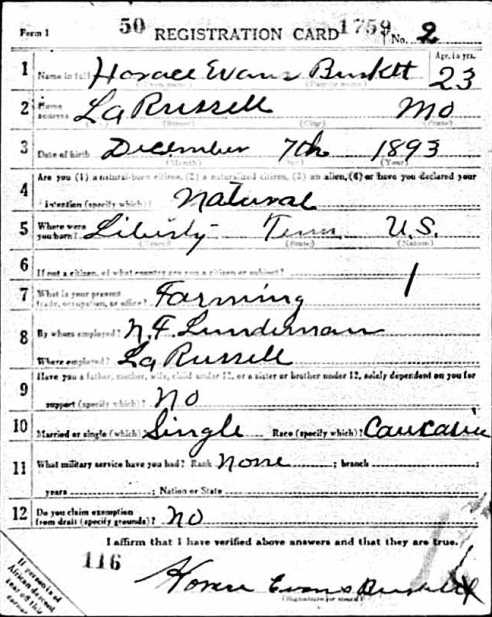 Form 1 50 REGISTRATION CARD 1759 No. 2
1 Name in full Horace Evans Burkett Age, in yrs. 23
2 Home address La Russell Mo
(Street) (City) (State)
3 Date of birth December 7th 1893
(Month) (Day) (Year)
4 Are you (1) a natural-born citizen, (2) a naturalized citizen, (3) an alien, (4) or have you declared your
intention (specify which)? Natural
5 Where were you born? Liberty Tenn U.S.
(Town) (State) (Nation)
6 If not a citizen, of what country are you a citizen or subject?
7 What is your present trade, occupation, or office? Farming
8 By whom employed? N.F. Lunderman
Where employed? La Russell
9 Have you a father, mother, wife, child under 12, or a sister or brother under 12, solely dependent on you for
support (specify which)? No
10 Married or single (which)? Single Race (specify which)? Caucasin
11 What military service have you had? Rank None ; branch ;
years ; Nation or State
12 Do you claim exemption from draft (specify grounds)? No
I affirm that I have verified above answers and that they are true.
116
Horace Evans Burkett
(Signature or mark)
If person is of African descent tear off this corner